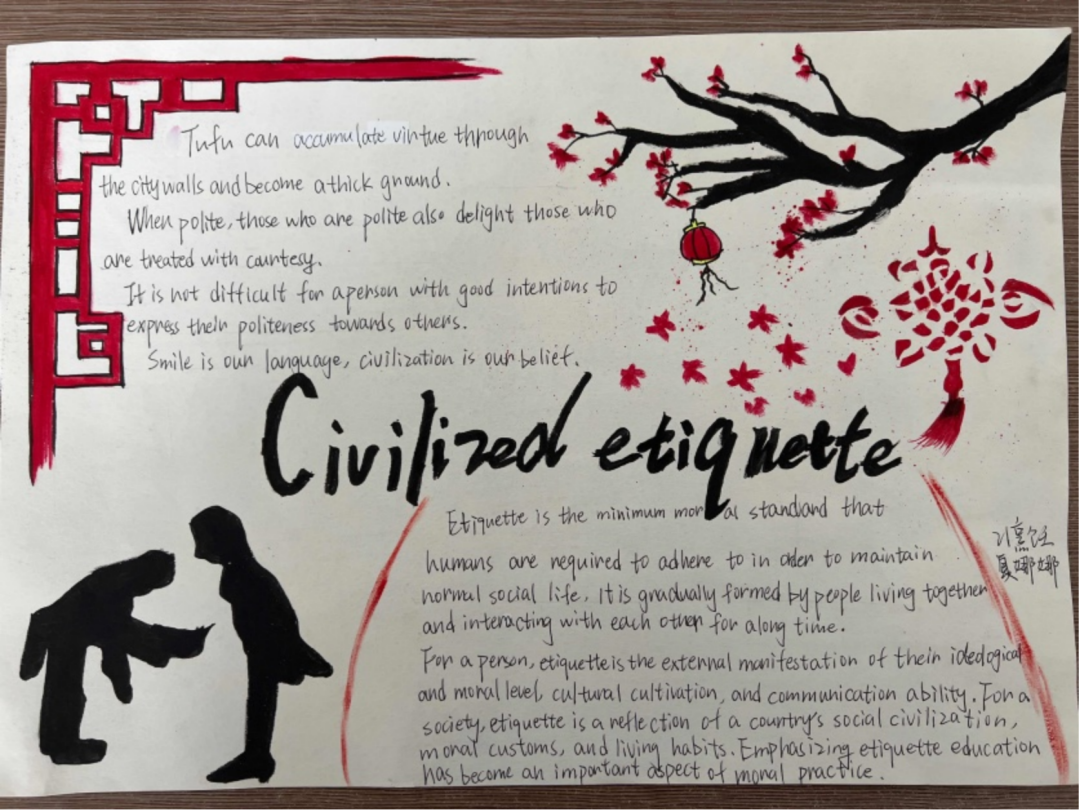 Tufu can accumulate virtue through
the city walls and become a thick ground.
When polite, those who are polite also delight those who
are treated with courtesy.
It is not difficult for a person with good intentions to
express their politeness towards others.
Smile is our language, civilization is our belief.
Civilized etiquette
Etiquette is the minimum moral standard that
humans are required to adhere to in oder to maintain
normal social life, It is gradually formed by people living together
and interacting with each other for a long time.
For a person, etiquette is the external manifestation of their ideological
and moral level, cultural cultivation, and communication ability. For a
society, etiquette is a reflection of a country's social civilization,
moral customs, and living habits. Emphasizing etiquette education
has become an important aspect of moral practice.
夏娜娜